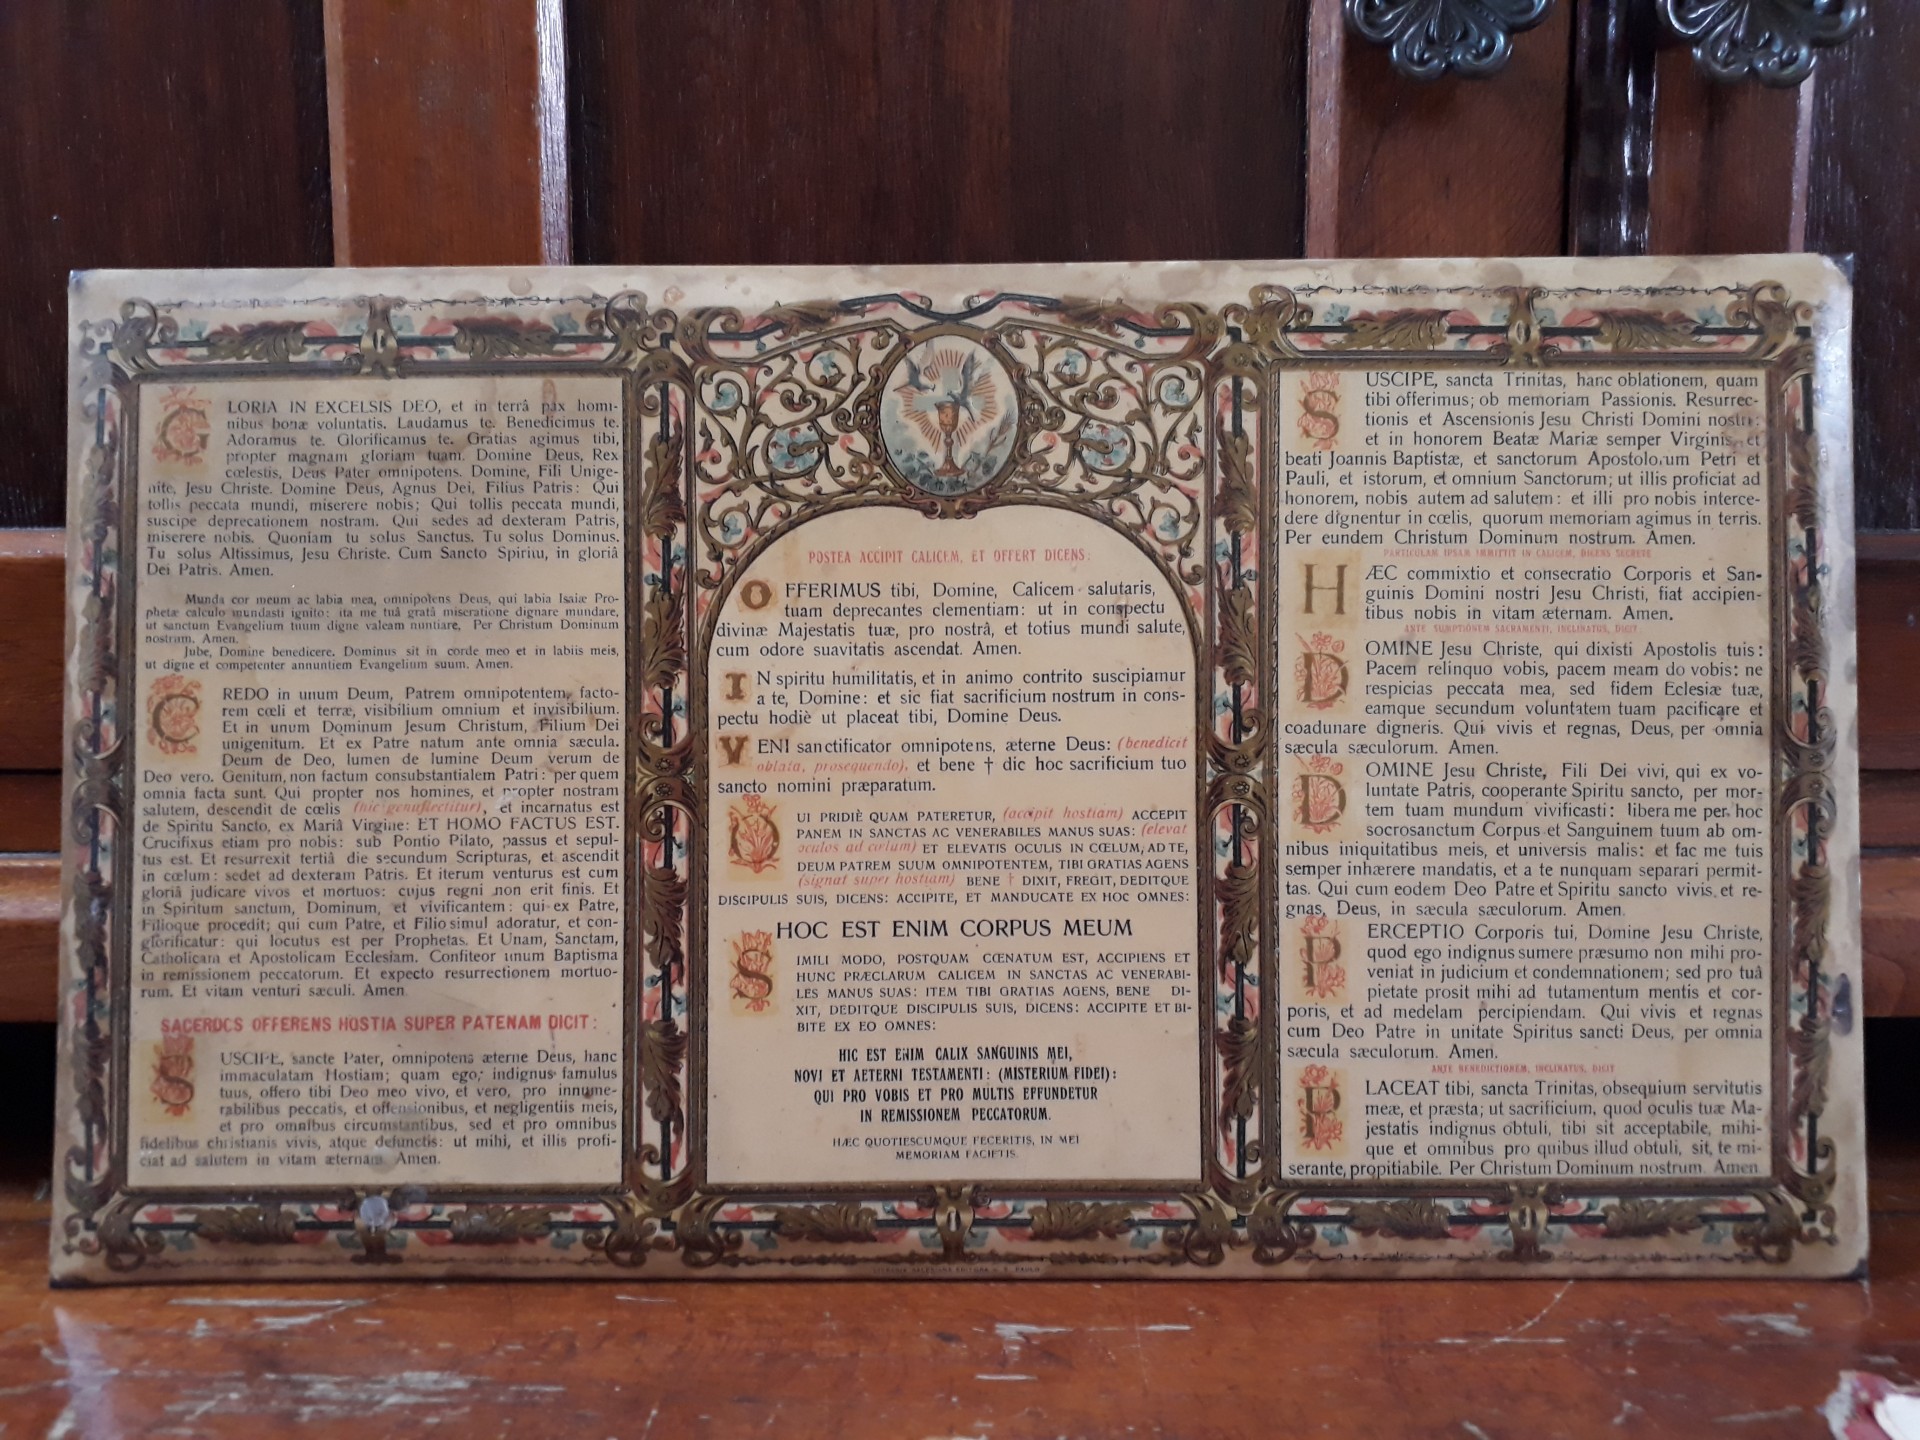 GLORIA IN EXCELSIS DEO, et in terrâ pax homi-
nibus bonæ voluntatis. Laudamus te. Benedicimus te.
Adoramus te. Glorificamus te. Gratias agimus tibi,
propter magnam gloriam tuam. Domine Deus, Rex
cœlestis, Deus Pater omnipotens. Domine, Fili Unige-
nite, Jesu Christe. Domine Deus, Agnus Dei, Filius Patris: Qui
tollis peccata mundi, miserere nobis; Qui tollis peccata mundi,
suscipe deprecationem nostram. Qui sedes ad dexteram Patris,
miserere nobis. Quoniam tu solus Sanctus. Tu solus Dominus.
Tu solus Altissimus, Jesu Christe. Cum Sancto Spiriiu, in gloriâ
Dei Patris. Amen.
Munda cor meum ac labia mea, omnipotens Deus, qui labia Isaiæ Pro-
phetæ calculo mundasti ignito: ita me tuâ gratâ miseratione dignare mundare,
ut sanctum Evangelium tuum digne valeam nuntiare. Per Christum Dominum
nostrum. Amen.
Jube, Domine benedicere. Dominus sit in corde meo et in labiis meis,
ut digne et competenter annuntiem Evangelium suum. Amen.
CREDO in unum Deum, Patrem omnipotentem, facto-
rem cœli et terræ, visibilium omnium et invisibilium.
Et in unum Dominum Jesum Christum, Filium Dei
unigenitum. Et ex Patre natum ante omnia sæcula.
Deum de Deo, lumen de lumine Deum verum de
Deo vero. Genitum, non factum consubstantialem Patri: per quem
omnia facta sunt. Qui propter nos homines, et propter nostram
salutem, descendit de cœlis (hic genuflectitur), et incarnatus est
de Spiritu Sancto, ex Mariâ Virgine: ET HOMO FACTUS EST.
Crucifixus etiam pro nobis: sub Pontio Pilato, passus et sepul-
tus est. Et resurrexit tertiâ die secundum Scripturas, et ascendit
in cœlum: sedet ad dexteram Patris. Et iterum venturus est cum
gloriâ judicare vivos et mortuos: cujus regni non erit finis. Et
in Spiritum sanctum, Dominum, et vivificantem: qui ex Patre,
Filioque procedit; qui cum Patre, et Filio simul adoratur, et con-
glorificatur: qui locutus est per Prophetas. Et Unam, Sanctam,
Catholicam et Apostolicam Ecclesiam. Confiteor unum Baptisma
in remissionem peccatorum. Et expecto resurrectionem mortuo-
rum. Et vitam venturi sæculi. Amen
SACERDOS OFFERENS HOSTIA SUPER PATENAM DICIT:
SUSCIPE, sancte Pater, omnipotens æterne Deus, hanc
immaculatam Hostiam; quam ego, indignus famulus
tuus, offero tibi Deo meo vivo, et vero, pro innume-
rabilibus peccatis, et offensionibus, et negligentiis meis,
et pro omnibus circumstantibus, sed et pro omnibus
fidelibus christianis vivis, atque defunctis: ut mihi, et illis profi-
ciat ad salutem in vitam æternam. Amen.
POSTEA ACCIPIT CALICEM, ET OFFERT DICENS:
OFFERIMUS tibi, Domine, Calicem salutaris,
tuam deprecantes clementiam: ut in conspectu
divinæ Majestatis tuæ, pro nostrâ, et totius mundi salute,
cum odore suavitatis ascendat. Amen.
IN spiritu humilitatis, et in animo contrito suscipiamur
a te, Domine: et sic fiat sacrificium nostrum in cons-
pectu hodiè ut placeat tibi, Domine Deus.
VENI sanctificator omnipotens, æterne Deus: (benedicit
oblata, prosequendo), et bene † dic hoc sacrificium tuo
sancto nomini præparatum.
QUI PRIDIÈ QUAM PATERETUR, (accipit hostiam) ACCEPIT
PANEM IN SANCTAS AC VENERABILES MANUS SUAS: (elevat
oculos ad cœlum) ET ELEVATIS OCULIS IN CŒLUM, AD TE,
DEUM PATREM SUUM OMNIPOTENTEM, TIBI GRATIAS AGENS
(signat super hostiam) BENE † DIXIT, FREGIT, DEDITQUE
DISCIPULIS SUIS, DICENS: ACCIPITE, ET MANDUCATE EX HOC OMNES:
HOC EST ENIM CORPUS MEUM
SIMILI MODO, POSTQUAM CŒNATUM EST, ACCIPIENS ET
HUNC PRÆCLARUM CALICEM IN SANCTAS AC VENERABI-
LES MANUS SUAS: ITEM TIBI GRATIAS AGENS, BENE DI-
XIT, DEDITQUE DISCIPULIS SUIS, DICENS: ACCIPITE ET BI-
BITE EX EO OMNES:
HIC EST ENIM CALIX SANGUINIS MEI,
NOVI ET AETERNI TESTAMENTI: (MISTERIUM FIDEI):
QUI PRO VOBIS ET PRO MULTIS EFFUNDETUR
IN REMISSIONEM PECCATORUM.
HÆC QUOTIESCUMQUE FECERITIS, IN MEI
MEMORIAM FACIETIS.
SUSCIPE, sancta Trinitas, hanc oblationem, quam
tibi offerimus; ob memoriam Passionis. Resurrec-
tionis et Ascensionis Jesu Christi Domini nostri:
et in honorem Beatæ Mariæ semper Virginis, et
beati Joannis Baptistæ, et sanctorum Apostolorum Petri et
Pauli, et istorum, et omnium Sanctorum; ut illis proficiat ad
honorem, nobis autem ad salutem: et illi pro nobis interce-
dere dignentur in cœlis, quorum memoriam agimus in terris.
Per eundem Christum Dominum nostrum. Amen.
PARTICULAM IPSAM IMMITTIT IN CALICEM, DICENS SECRETE
HÆC commixtio et consecratio Corporis et San-
guinis Domini nostri Jesu Christi, fiat accipien-
tibus nobis in vitam æternam. Amen.
ANTE SUMPTIONEM SACRAMENTI, INCLINATUS, DICIT
DOMINE Jesu Christe, qui dixisti Apostolis tuis:
Pacem relinquo vobis, pacem meam do vobis: ne
respicias peccata mea, sed fidem Eclesiæ tuæ,
eamque secundum voluntatem tuam pacificare et
coadunare digneris. Qui vivis et regnas, Deus, per omnia
sæcula sæculorum. Amen.
DOMINE Jesu Christe, Fili Dei vivi, qui ex vo-
luntate Patris, cooperante Spiritu sancto, per mor-
tem tuam mundum vivificasti: libera me per hoc
socrosanctum Corpus et Sanguinem tuum ab om-
nibus iniquitatibus meis, et universis malis: et fac me tuis
semper inhærere mandatis, et a te nunquam separari permit-
tas. Qui cum eodem Deo Patre et Spiritu sancto vivis et re-
gnas, Deus, in sæcula sæculorum. Amen.
PERCEPTIO Corporis tui, Domine Jesu Christe,
quod ego indignus sumere præsumo non mihi pro-
veniat in judicium et condemnationem; sed pro tuâ
pietate prosit mihi ad tutamentum mentis et cor-
poris, et ad medelam percipiendam. Qui vivis et regnas
cum Deo Patre in unitate Spiritus sancti Deus, per omnia
sæcula sæculorum. Amen.
ANTE BENEDICTIONEM, INCLINATUS, DICIT
PLACEAT tibi, sancta Trinitas, obsequium servitutis
meæ, et præsta; ut sacrificium, quod oculis tuæ Ma-
jestatis indignus obtuli, tibi sit acceptabile, mihi-
que et omnibus pro quibus illud obtuli, sit, te mi-
serante, propitiabile. Per Christum Dominum nostrum. Amen